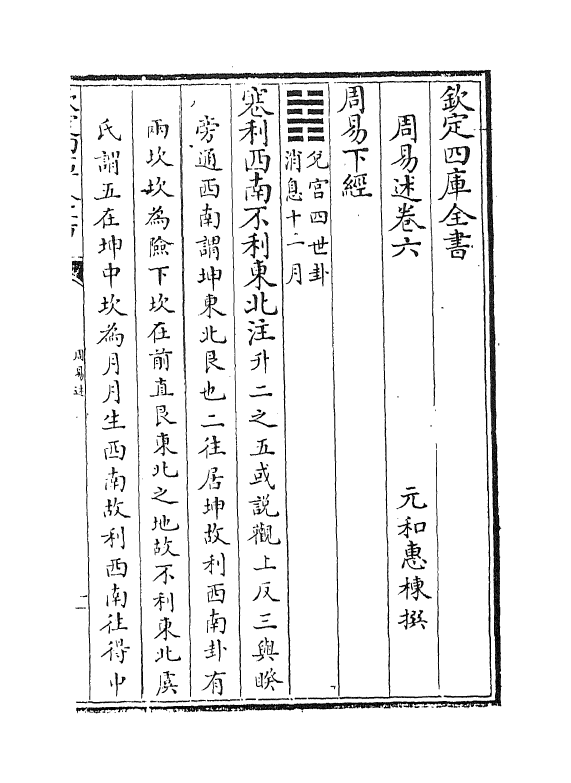 欽定四庫全書
周易述卷六
元和惠棟撰
周易下經
䷦兌宮四世卦
消息十一月
蹇利西南不利東北注升二之五或說觀上反三與睽
旁通西南謂坤東北艮也二往居坤故利西南卦有
兩坎坎為險下坎在前直艮東北之地故不利東北虞
氏謂五在坤中坎為月月生西南故利西南往得中
周易述